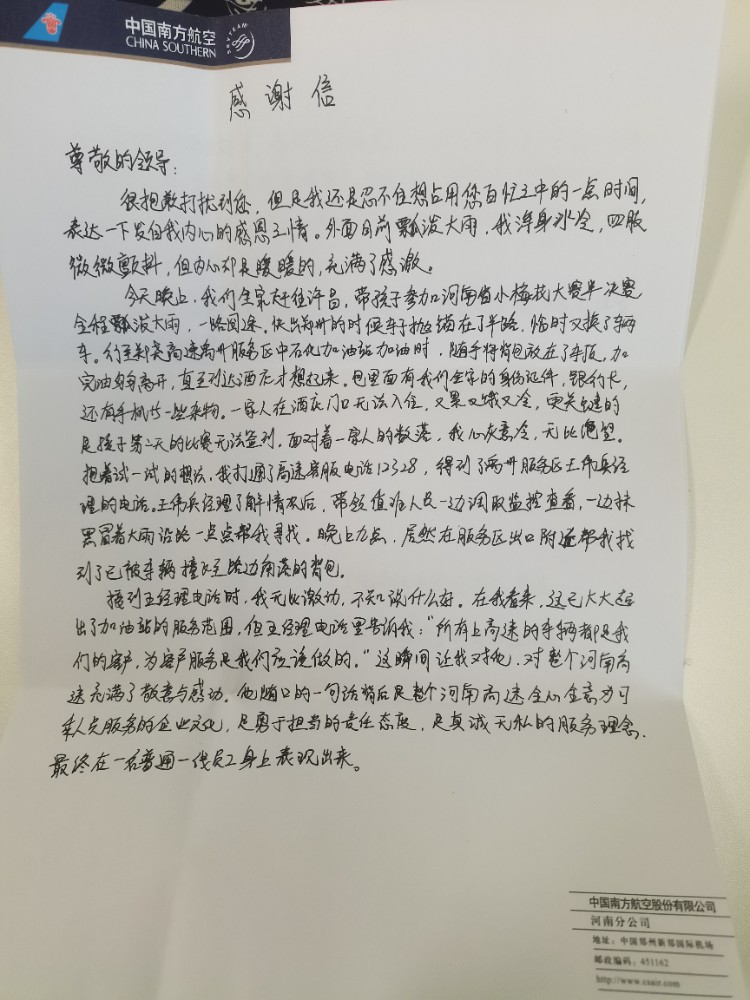 中国南方航空
CHINA SOUTHERN
SKYTEAM
感谢信
尊敬的领导：
很抱歉打扰到您，但是我还是忍不住想占用您百忙之中的一点时间，
表达一下发自我内心的感恩之情。外面目前瓢泼大雨，我浑身冰冷，四肢
微微颤抖，但内心却是暖暖的，充满了感激。
今天晚上，我们全家赶往许昌，带孩子参加河南省小梅花大赛半决赛
全程瓢泼大雨，一路周途，快出郑州的时候车子抛锚在了半路，临时又换了辆
车。行至郑尧高速禹州服务区中石化加油站加油时，随手将背包放在了车顶，加
完油匆匆离开，直至到达酒店才想起来。包里面有我们全家的身份证件，银行卡，
还有手机等一些杂物。一家人在酒店门口无法入住，又累又饿又冷，更关键的
是孩子第二天的比赛无法签到，面对着一家人的数落，我心灰意冷，无比绝望。
抱着试一试的想法，我打通了高速客服电话12328，得到了禹州服务区王伟兵经
理的电话。王伟兵经理了解情况后，带领值班人员一边调取监控查看，一边抹
黑冒着大雨沿路一点点帮我寻找。晚上九点，居然在服务区出口附近帮我找
到了已被车辆撞飞至路边角落的背包。
接到王经理电话时，我无比激动，不知说什么好。在我看来，这已大大超
出了加油站的服务范围，但王经理电话里告诉我：“所有上高速的车辆都是我
们的客户，为客户服务是我们应该做的。”这瞬间让我对他，对整个河南高
速充满了敬意与感动。他随口的一句话背后是整个河南高速全心全意为司
乘人员服务的企业文化，是勇于担当的责任态度，是真诚无私的服务理念，
最终在一名普通一线员工身上表现出来。
中国南方航空股份有限公司
河南分公司
地址：中国郑州新郑国际机场
邮政编码：451162
http://www.csair.com